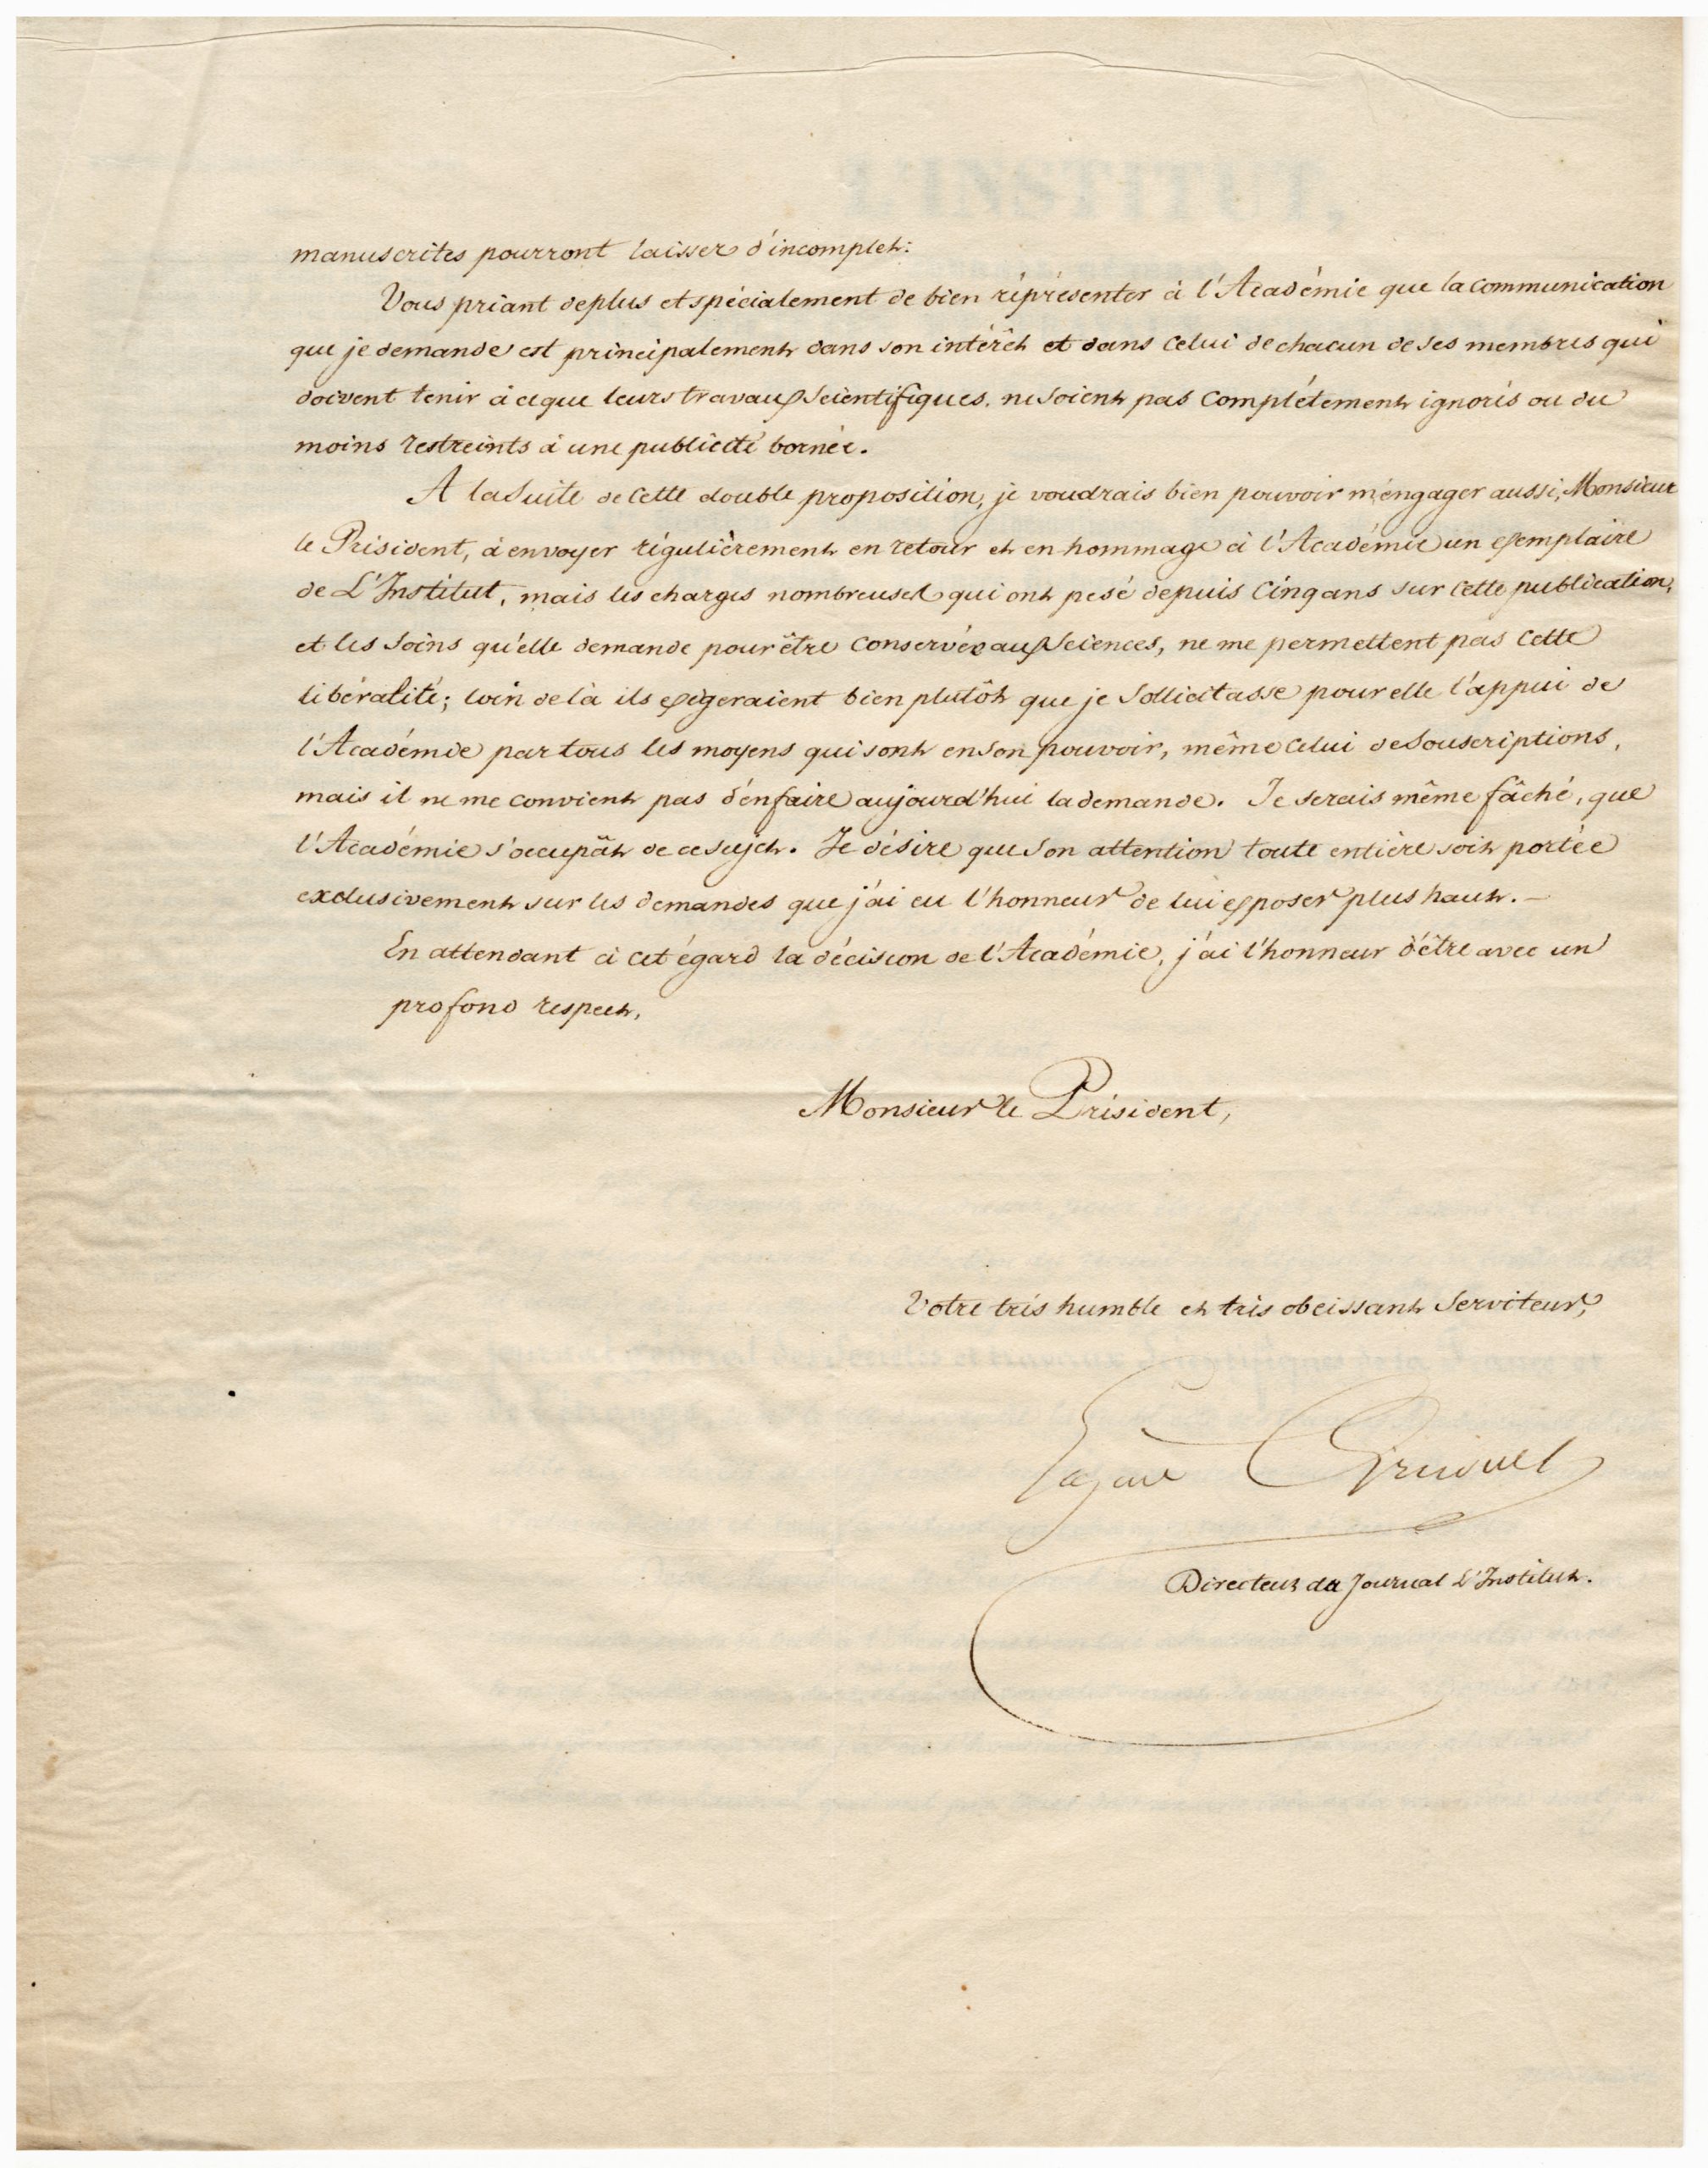 manuscrites pourront laisser d'incomplet.
Vous priant de plus et spécialement de bien réprésenter à l'Académie que la communication
que je demande est principalement dans son intérêt et dans celui de chacun de ses membres qui
doivent tenir à ce que leurs travaux scientifiques ne soient pas complétement ignorés ou du
moins restreints à une publicité bornée.
A la suite de cette double proposition, je voudrais bien pouvoir m'engager aussi, Monsieur
le Président, à envoyer régulièrement en retour et en hommage à l'Académie un exemplaire
de L'Institut, mais les charges nombreuses qui ont pesé depuis cinq ans sur cette publication,
et les soins qu'elle demande pour être conservée aux Sciences, ne me permettent pas cette
libéralité; loin de là ils exigeraient bien plutôt que je sollicitasse pour elle l'appui de
l'Académie par tous les moyens qui sont en son pouvoir, même celui de souscriptions,
mais il ne me convient pas d'en faire aujourd'hui la demande. Je serais même fâché, que
l'Académie s'occupât de ce sujet. Je désire que son attention toute entière soit portée
exclusivement sur les demandes que j'ai eu l'honneur de lui exposer plus haut. —
En attendant à cet égard la décision de l'Académie, j'ai l'honneur d'être avec un
profond respect,
Monsieur le Président,
Votre très humble et très obeissant Serviteur,
Eugène Arnoult
Directeur du Journal L'Institut.
L'INSTITUT,